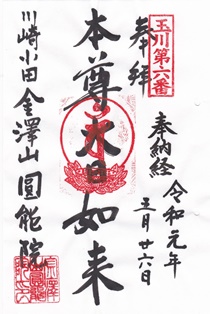 玉川第六番
奉拝
奉納経
令和元年
五月廿六日
本尊大日如来
川崎小田
金澤山
圓能院